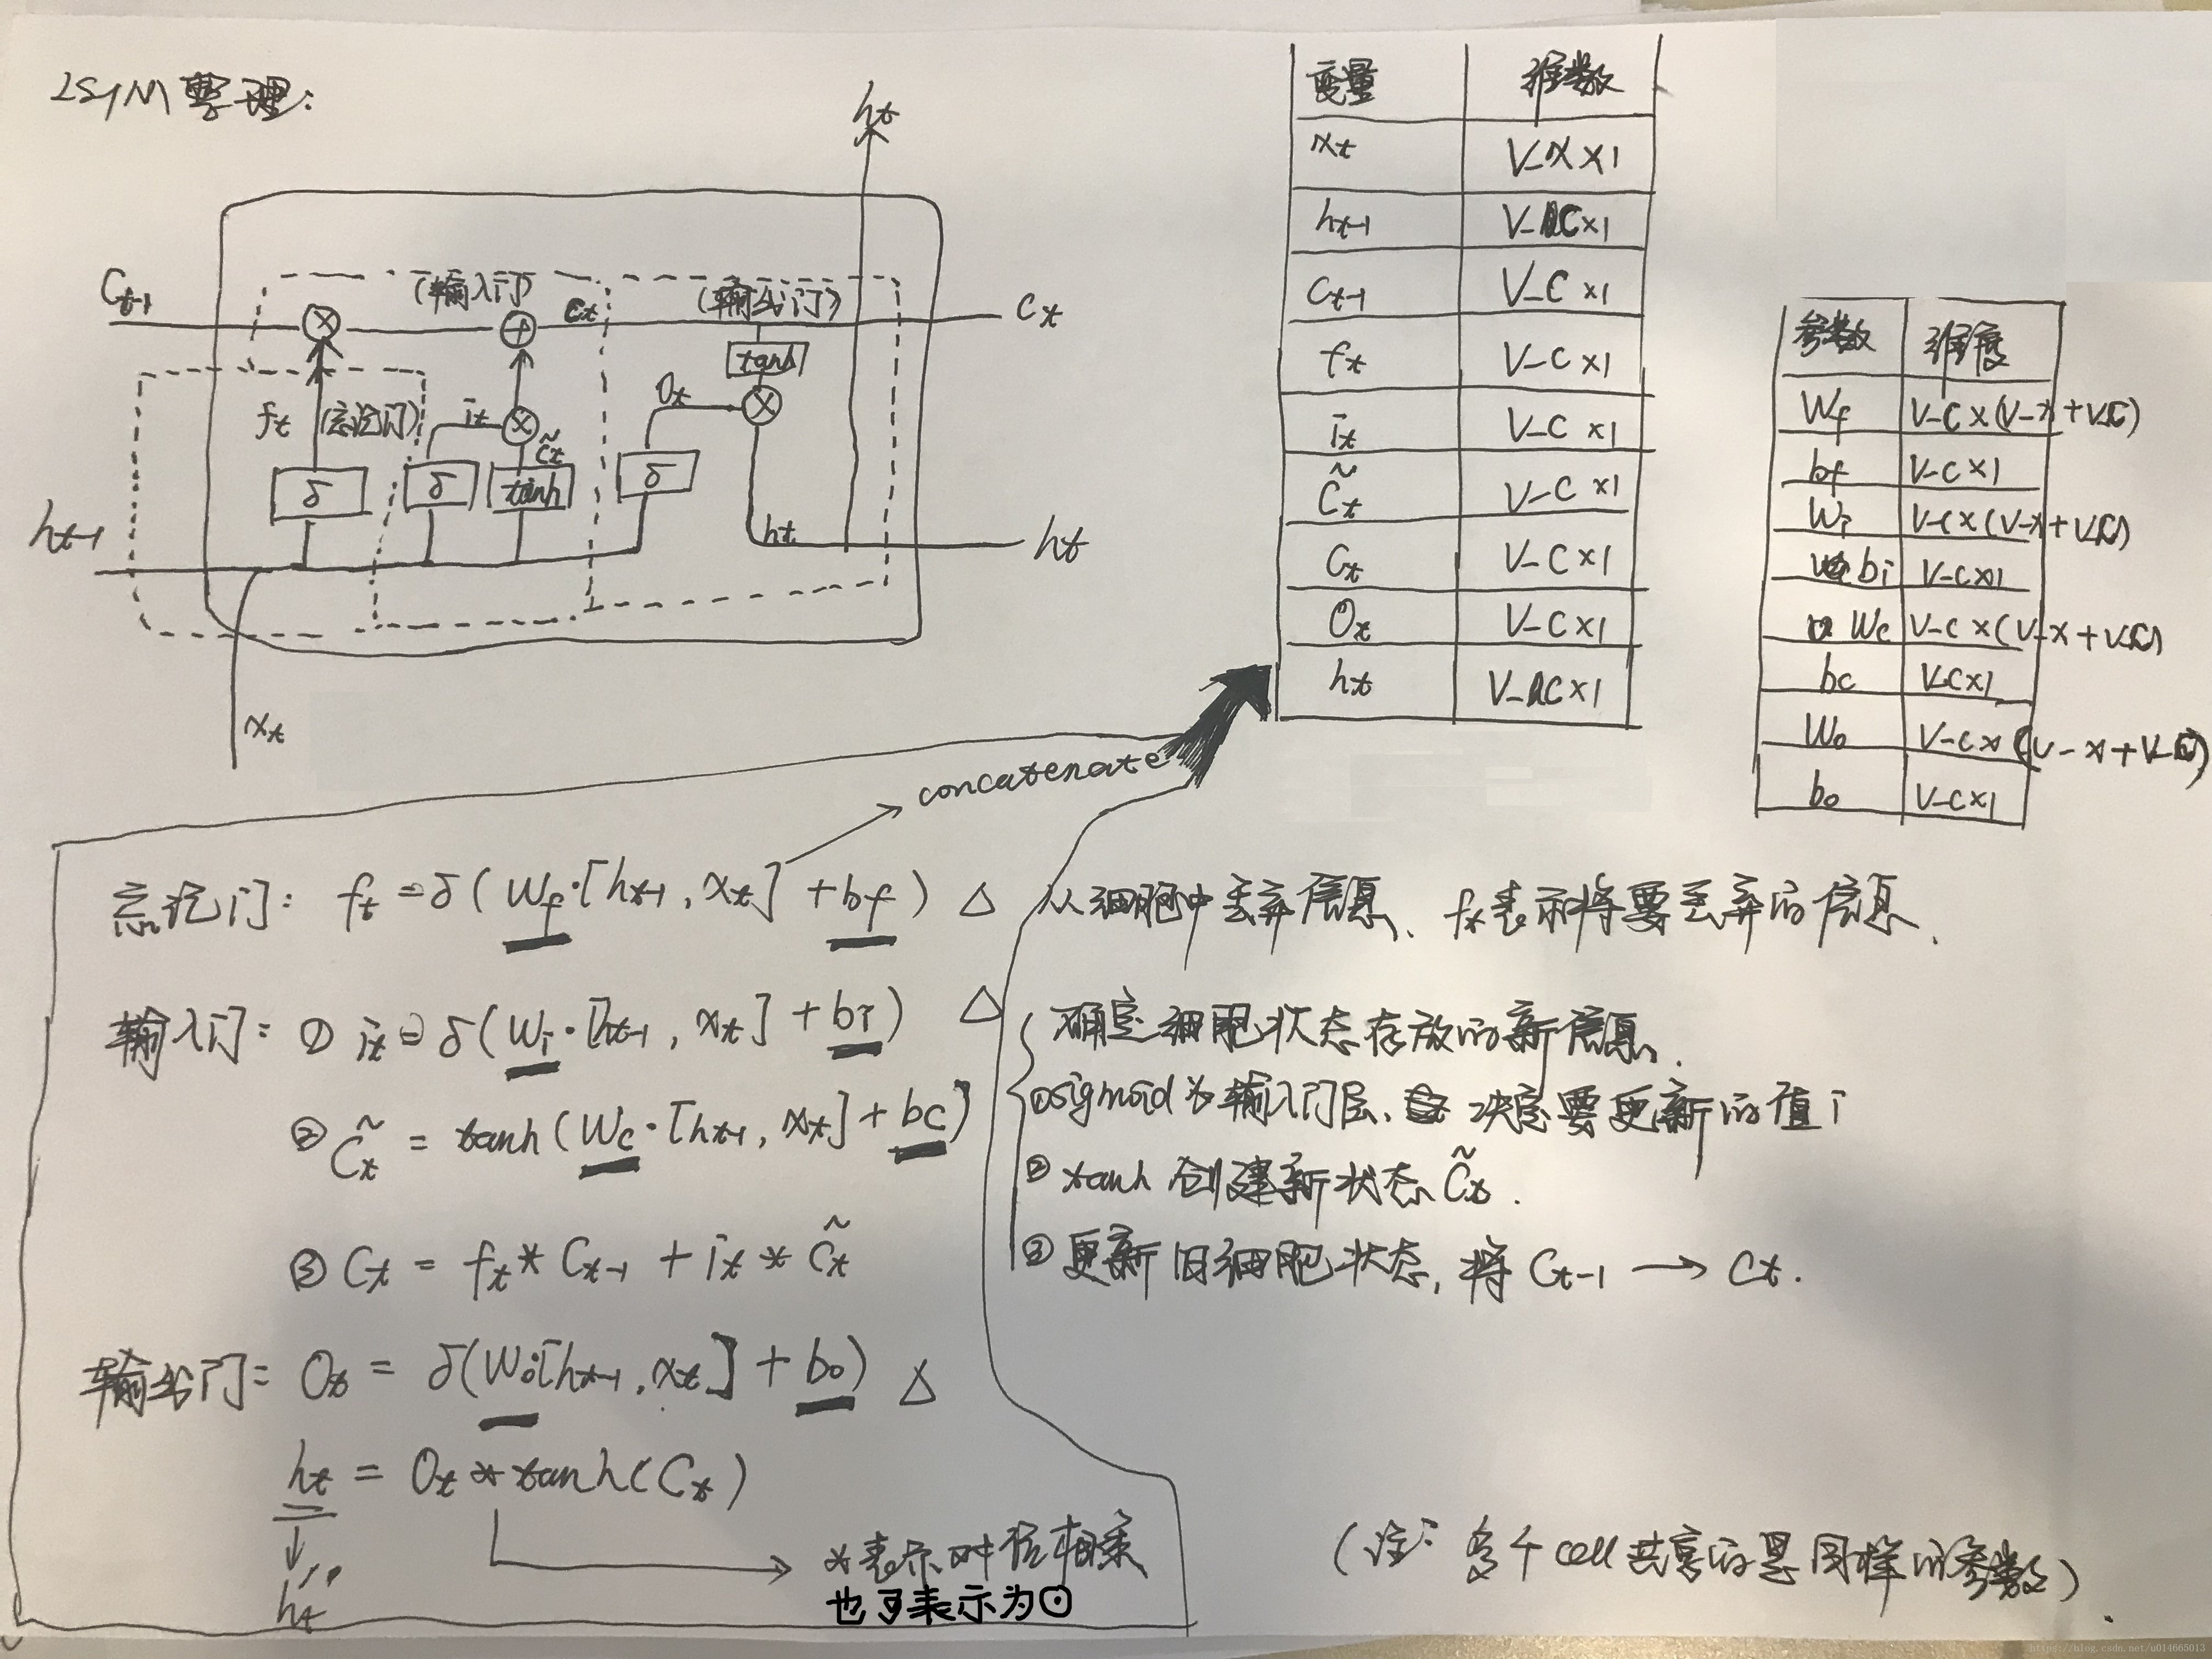 LSTM整理:
ht
Ct-1
(输入门)
Ct
(输出门)
Ct
tanh
Ot
ft (忘记门)
it
C̃t
δ
δ
tanh
δ
ht-1
ht
ht
xt
变量 维数
xt V-X×1
ht-1 V-C×1
Ct-1 V-C×1
ft V-C×1
it V-C×1
C̃t V-C×1
Ct V-C×1
Ot V-C×1
ht V-C×1
参数 维度
Wf V-C×(V-X+V-C)
bf V-C×1
Wi V-C×(V-X+V-C)
bi V-C×1
Wc V-C×(V-X+V-C)
bc V-C×1
Wo V-C×(V-X+V-C)
bo V-C×1
concatenate
忘记门: ft=δ(Wf·[ht-1,xt]+bf) △ 从细胞中丢弃信息、ft表示将要丢弃的信息、
输入门: ① it=δ(Wi·[ht-1,xt]+bi) △ 确定细胞状态存放的新信息.
①sigmoid为输入门层, 决定要更新的值i
② C̃t=tanh(Wc·[ht-1,xt]+bc)
②tanh创建新状态C̃t.
③ Ct=ft*Ct-1+it*C̃t
③更新旧细胞状态,将Ct-1→Ct.
输出门: Ot=δ(Wo·[ht-1,xt]+bo) △
ht=Ot*tanh(Ct)
*表示对位相乘
也可表示为⊙
ht
(注: 多个cell共享的是同样的参数).
https://blog.csdn.net/u014665013